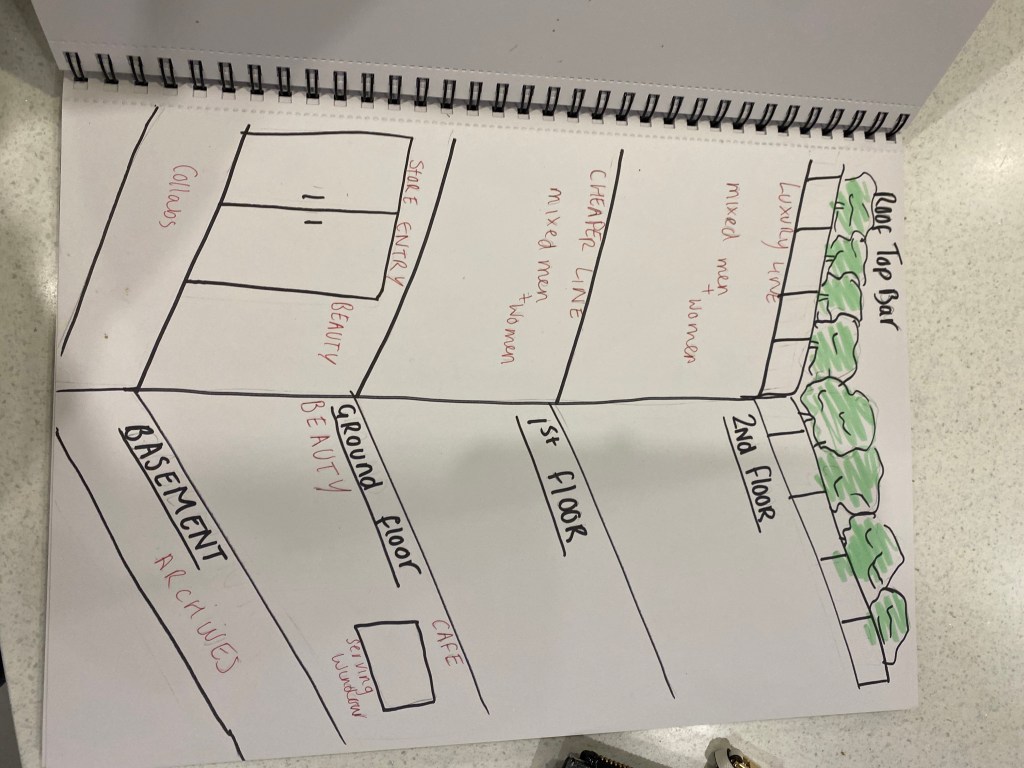 Roof Top Bar
LUXURY LINE
mixed men + women
2nd floor
CHEAPER LINE
mixed men + women
1st floor
STORE ENTRY
BEAUTY
GROUND floor
BEAUTY
CAFE
serving
window
Collabs
BASEMENT
ARCHIVES